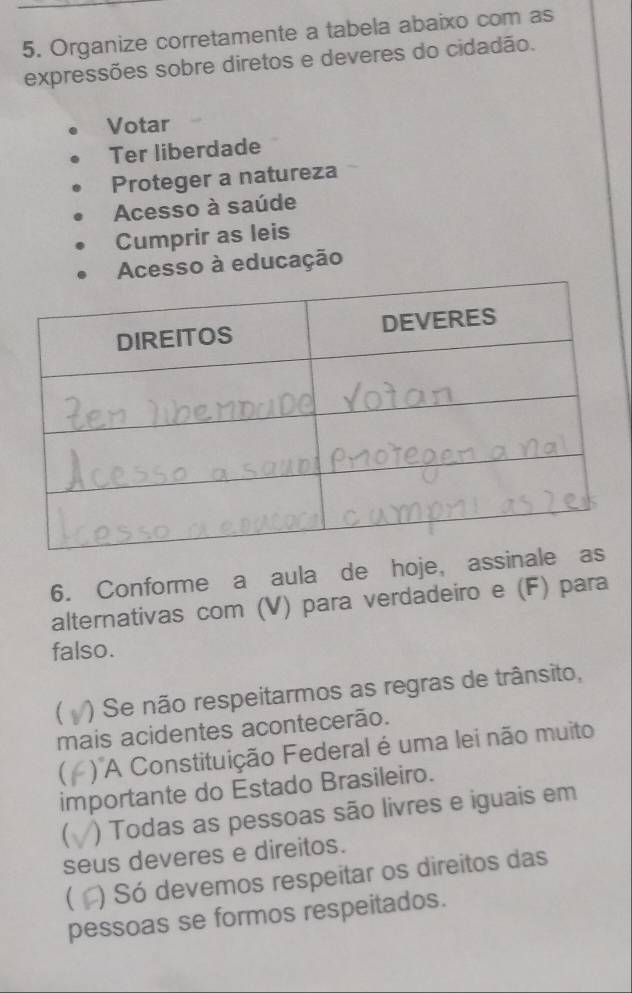 5. Organize corretamente a tabela abaixo com as
expressões sobre diretos e deveres do cidadão.
• Votar
• Ter liberdade
• Proteger a natureza
• Acesso à saúde
• Cumprir as leis
• Acesso à educação
DIREITOS DEVERES
Ter liberdade Votar
Acesso a saude proteger a nat
Acesso a educaca cumpri as leis
6. Conforme a aula de hoje, assinale as
alternativas com (V) para verdadeiro e (F) para
falso.
(V) Se não respeitarmos as regras de trânsito,
mais acidentes acontecerão.
(F) A Constituição Federal é uma lei não muito
importante do Estado Brasileiro.
(V) Todas as pessoas são livres e iguais em
seus deveres e direitos.
(F) Só devemos respeitar os direitos das
pessoas se formos respeitados.